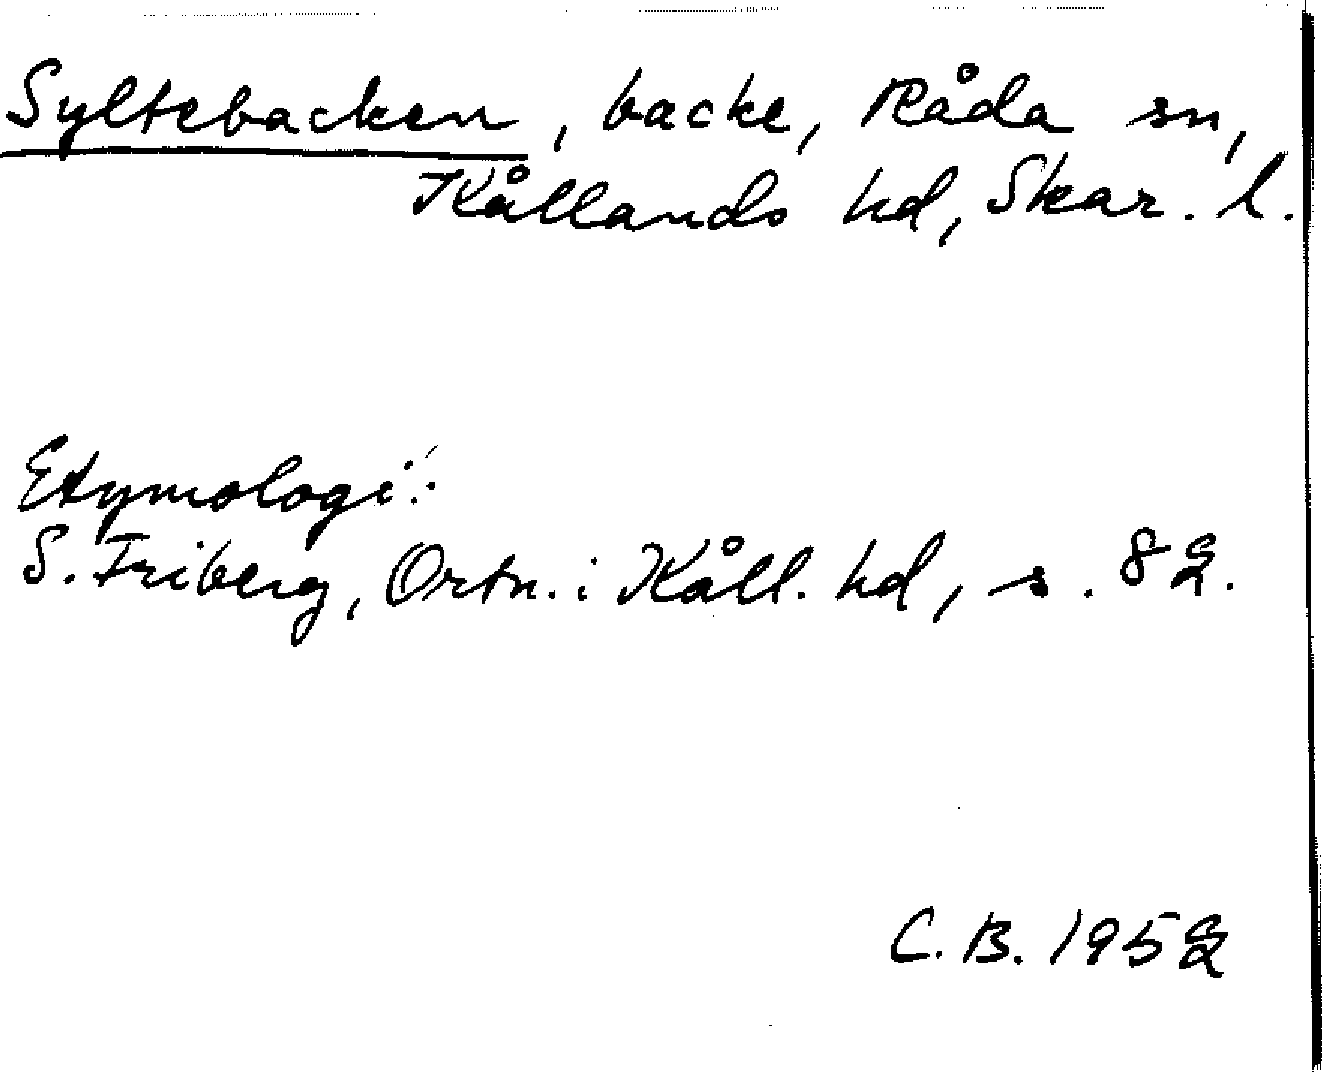 Syltebacken, backe, Råda sn,
Kållands hd, Skar. l.
Etymologi:
S. Friberg, Ortn. i Kåll. hd, s. 82.
C. B. 1952